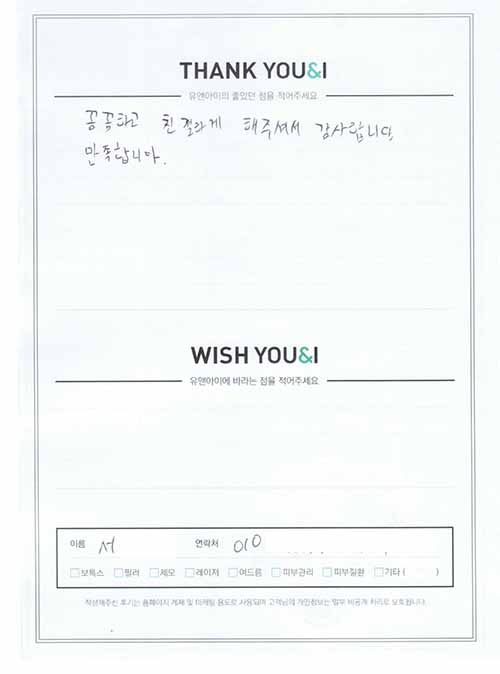 THANK YOU&I
유앤아이의 좋았던 점을 적어주세요
꼼꼼하고 친절하게 해주셔서 감사합니다.
만족합니다.
WISH YOU&I
유앤아이에 바라는 점을 적어주세요
이름 서 연락처 010
보톡스 필러 제모 레이저 여드름 피부관리 피부질환 기타 ( )
작성해주신 후기는 홈페이지 게재 및 마케팅 용도로 사용되며 고객님의 개인정보는 일부 비공개 처리로 보호됩니다.